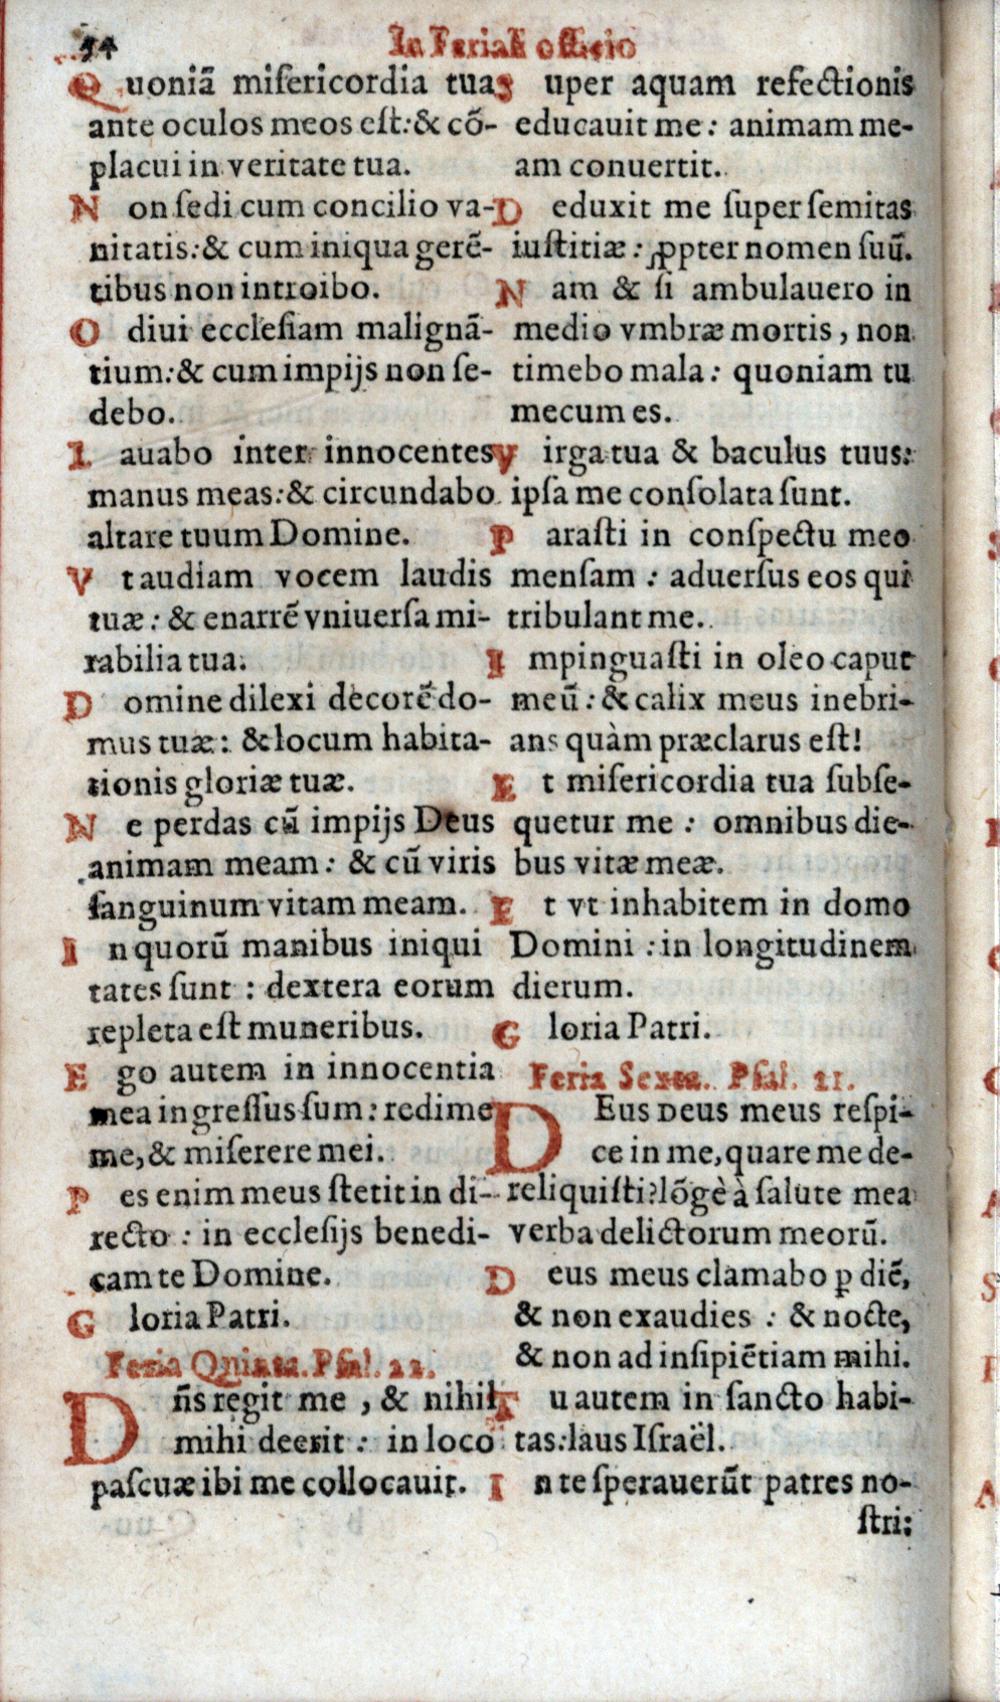 54
In Feriali officio
Quoniã miſericordia tua
ante oculos meos eſt: & cõ-
placui in veritate tua.
Non ſedi cum concilio va-
nitatis: & cum iniqua gerẽ-
tibus non introibo.
Odiui eccleſiam malignã-
tium: & cum impijs non ſe-
debo.
Lauabo inter innocentes
manus meas: & circundabo
altare tuum Domine.
Vt audiam vocem laudis
tuæ: & enarrẽ vniuerſa mi-
rabilia tua.
Domine dilexi decorẽ do-
mus tuæ: & locum habita-
tionis gloriæ tuæ.
Ne perdas cũ impijs Deus
animam meam: & cũ viris
ſanguinum vitam meam.
In quorũ manibus iniqui
tates ſunt: dextera eorum
repleta eſt muneribus.
Ego autem in innocentia
mea ingreſſus ſum: redime
me, & miſerere mei.
Pes enim meus ſtetit in di-
recto: in eccleſijs benedi-
cam te Domine.
Gloria Patri.
Feria Quinta. Pſal. 22.
Dñs regit me, & nihil
mihi deerit: in loco
paſcuæ ibi me collocauit.
Super aquam refectionis
educauit me: animam me-
am conuertit.
Deduxit me ſuper ſemitas
iuſtitiæ: ꝓpter nomen ſuũ.
Nam & ſi ambulauero in
medio vmbræ mortis, non
timebo mala: quoniam tu
mecum es.
Virga tua & baculus tuus:
ipſa me conſolata ſunt.
Paraſti in conſpectu meo
menſam: aduerſus eos qui
tribulant me.
Impinguaſti in oleo caput
meũ: & calix meus inebri-
ans quàm præclarus eſt!
Et miſericordia tua ſubſe-
quetur me: omnibus die-
bus vitæ meæ.
Et vt inhabitem in domo
Domini: in longitudinem
dierum.
Gloria Patri.
Feria Sexta. Pſal. 21.
DEus Deus meus reſpi-
ce in me, quare me de-
reliquiſti? lõgè à ſalute mea
verba delictorum meorũ.
Deus meus clamabo ꝑ diẽ,
& non exaudies: & nocte,
& non ad inſipiẽtiam mihi.
Tu autem in ſancto habi-
tas: laus Iſraël.
In te ſperauerũt patres no-
ſtri: